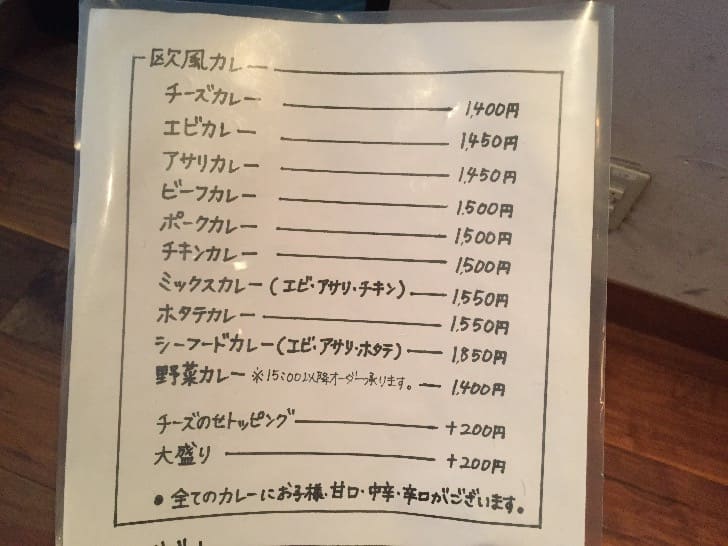 欧風カレー
チーズカレー 1,400円
エビカレー 1,450円
アサリカレー 1,450円
ビーフカレー 1,500円
ポークカレー 1,500円
チキンカレー 1,500円
ミックスカレー(エビ・アサリ・チキン) 1,550円
ホタテカレー 1,550円
シーフードカレー(エビ・アサリ・ホタテ) 1,850円
野菜カレー ※15:00以降オーダー承ります。 1,400円
チーズのせトッピング +200円
大盛り +200円
●全てのカレーにお子様・甘口・中辛・辛口がございます。